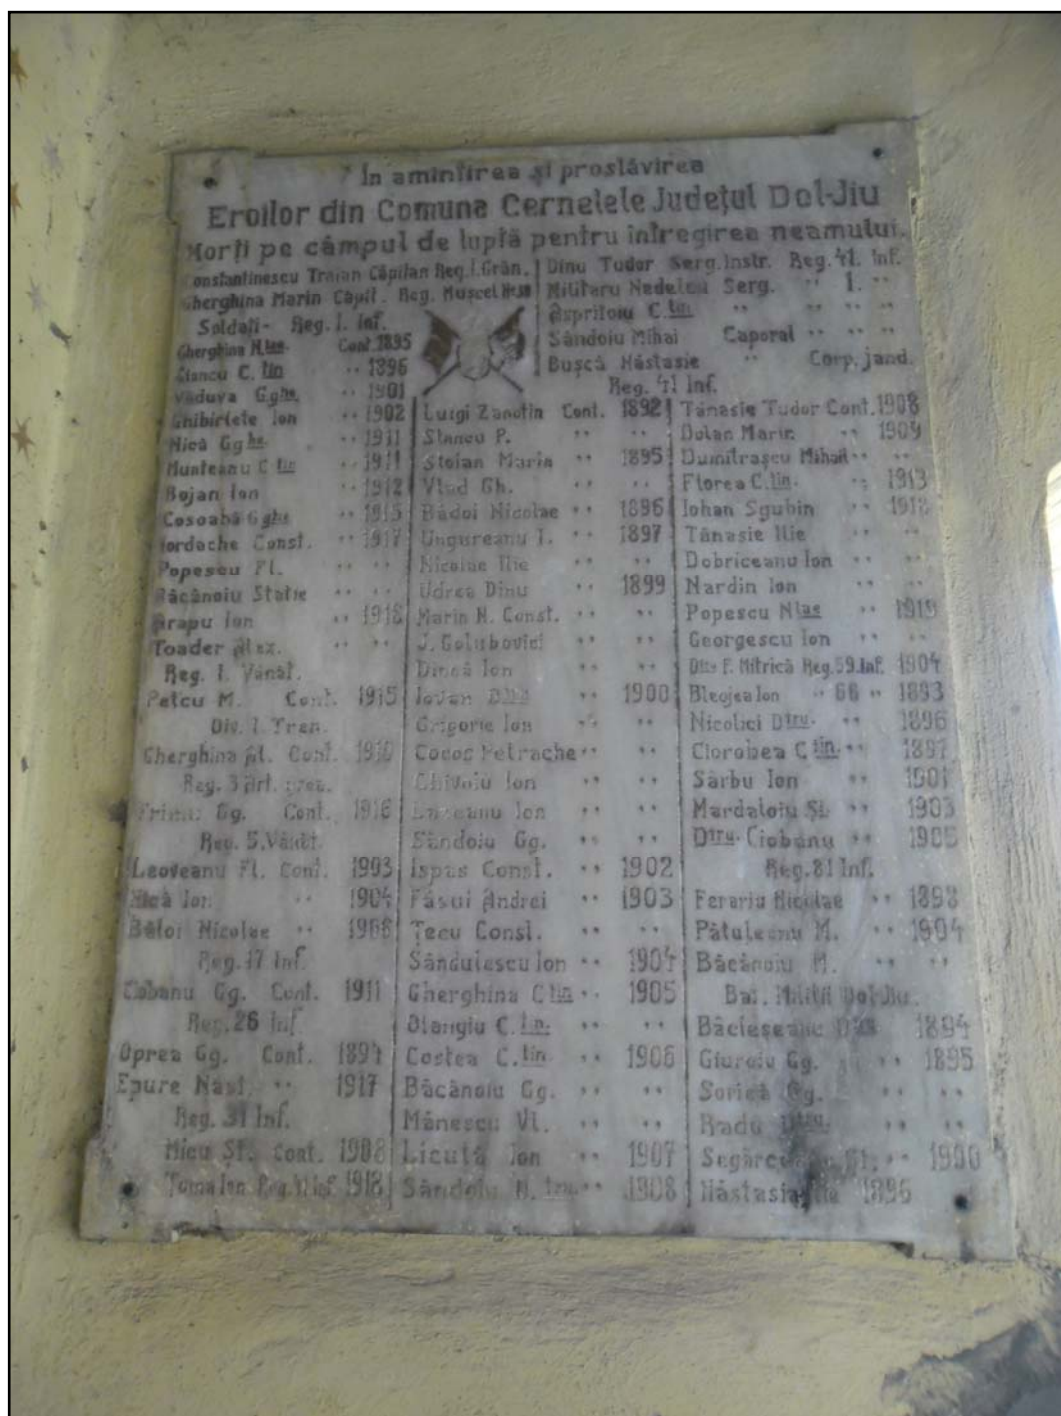 În amintirea și proslăvirea
Eroilor din Comuna Cernelele Județul Dol-Jiu
Morți pe câmpul de luptă pentru întregirea neamului.
Constantinescu Traian Căpitan Reg. I. Grăn.
Gherghina Marin Căpit. Reg. Mușcel
Soldați- Reg. 1. Inf.
Gherghina Cont. 1895
Stancu C. tin ·· 1896
Văduva Gghe. ·· 1901
Ghibirlete Ion ·· 1902
Nică Gghe ·· 1911
Munteanu C tin ·· 1911
Bojan Ion ·· 1912
Cosoabă Gghe ·· 1915
Iordache Const. ·· 1917
Popescu Fl. ·· ··
Băcănoiu Statie ·· ··
Arapu Ion ·· 1918
Toader Alex. ·· ··
Reg. 1. Vânăt.
Petcu M. Cont. 1915
Div. 1. Tren.
Gherghina Al. Cont.
Reg. 3 Art.
Gg. Cont. 1916
Reg. 5. Vânăt.
Leoveanu Fl. Cont. 1903
Nică Ion ·· 1904
Băloi Nicolae ··
Reg. 17 Inf.
Ciobanu Gg. Cont. 1911
Reg. 26 Inf.
Oprea Gg. Cont. 1894
Epure Năst. ·· 1917
Reg. 31 Inf.
Micu Șt. Cont. 1908
Toma Ion Reg. Inf. 1918
Dinu Tudor Serg. Instr. Reg. 41. Inf.
Militaru Nedelcu Serg. ·· 1. ··
Aspritoiu C. tin ·· ·· ··
Săndoiu Mihai Caporal ·· ·· ··
Bușcă Năstasie ·· Corp. jand.
Reg. 41 Inf.
Luigi Zanotin Cont. 1892
Stancu P. ·· ··
Stoian Marin ·· 1895
Vlad Gh. ·· ··
Bădoi Nicolae ·· 1896
Ungureanu I. ·· 1897
Nicolae Ilie ·· ··
Udrea Dinu 1899
Marin N. Const. ·· ··
J. Golubovici ·· ··
Dincă Ion ·· ··
Iovan 1900
Grigorie Ion ·· ··
Cocoș Petrache ·· ··
Ghivoiu Ion ·· ··
Ion ·· ··
Săndoiu Gg. ·· ··
Ispas Const. ·· 1902
Făsui Andrei ·· 1903
Țecu Const. ·· ··
Sănduiescu Ion ·· 1904
Gherghina C tin ·· 1905
Olangiu C. tin. ·· ··
Costea C. tin ·· 1906
Băcănoiu Gg. ·· ··
Mănescu Vl. ·· ··
Licuță Ion ·· 1907
Săndoiu N. ·· 1908
Tănasie Tudor Cont. 1908
Dolan Marin ·· 1909
Dumitrașcu Mihail ·· ··
Florea C. tin. ·· 1913
Iohan Sgubin ·· 1918
Tănasie Ilie ·· ··
Dobriceanu Ion ·· ··
Nardin Ion ·· ··
Popescu Nlae ·· 1919
Georgescu Ion ·· ··
F. Mitrică Reg. 59. Inf. 1904
Bleojea Ion ·· 66 ·· 1893
Nicolici Dtru. ·· 1896
Ciorobea C tin. ·· 1897
Sârbu Ion ·· 1901
Mardaloiu Șt. ·· 1903
Dtru. Ciobanu ·· 1905
Reg. 81 Inf.
Ferariu Nicolae ·· 1898
Pătuleanu M. ·· 1904
Băcănoiu M. ·· ··
Bat. Miliții Dol-Jiu.
Băcleșeanu 1894
Giuroiu Gg. ·· 1895
Sorică Gg. ·· ··
Radu Dtru. ·· ··
Șt. ·· 1900
Năstasia Ilie 1896